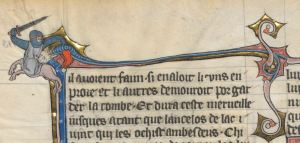 il auoient faim si en aloit li uns en
proie et li autres demouroit por gar
der la tombe. Et dura ceste merueille
iusques atant que lancelos de lac
uint qui les ochist ambesdeus. Chi